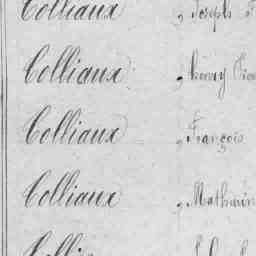 Colliaux, Joseph
Colliaux,
Colliaux, François
Colliaux, Mathurin